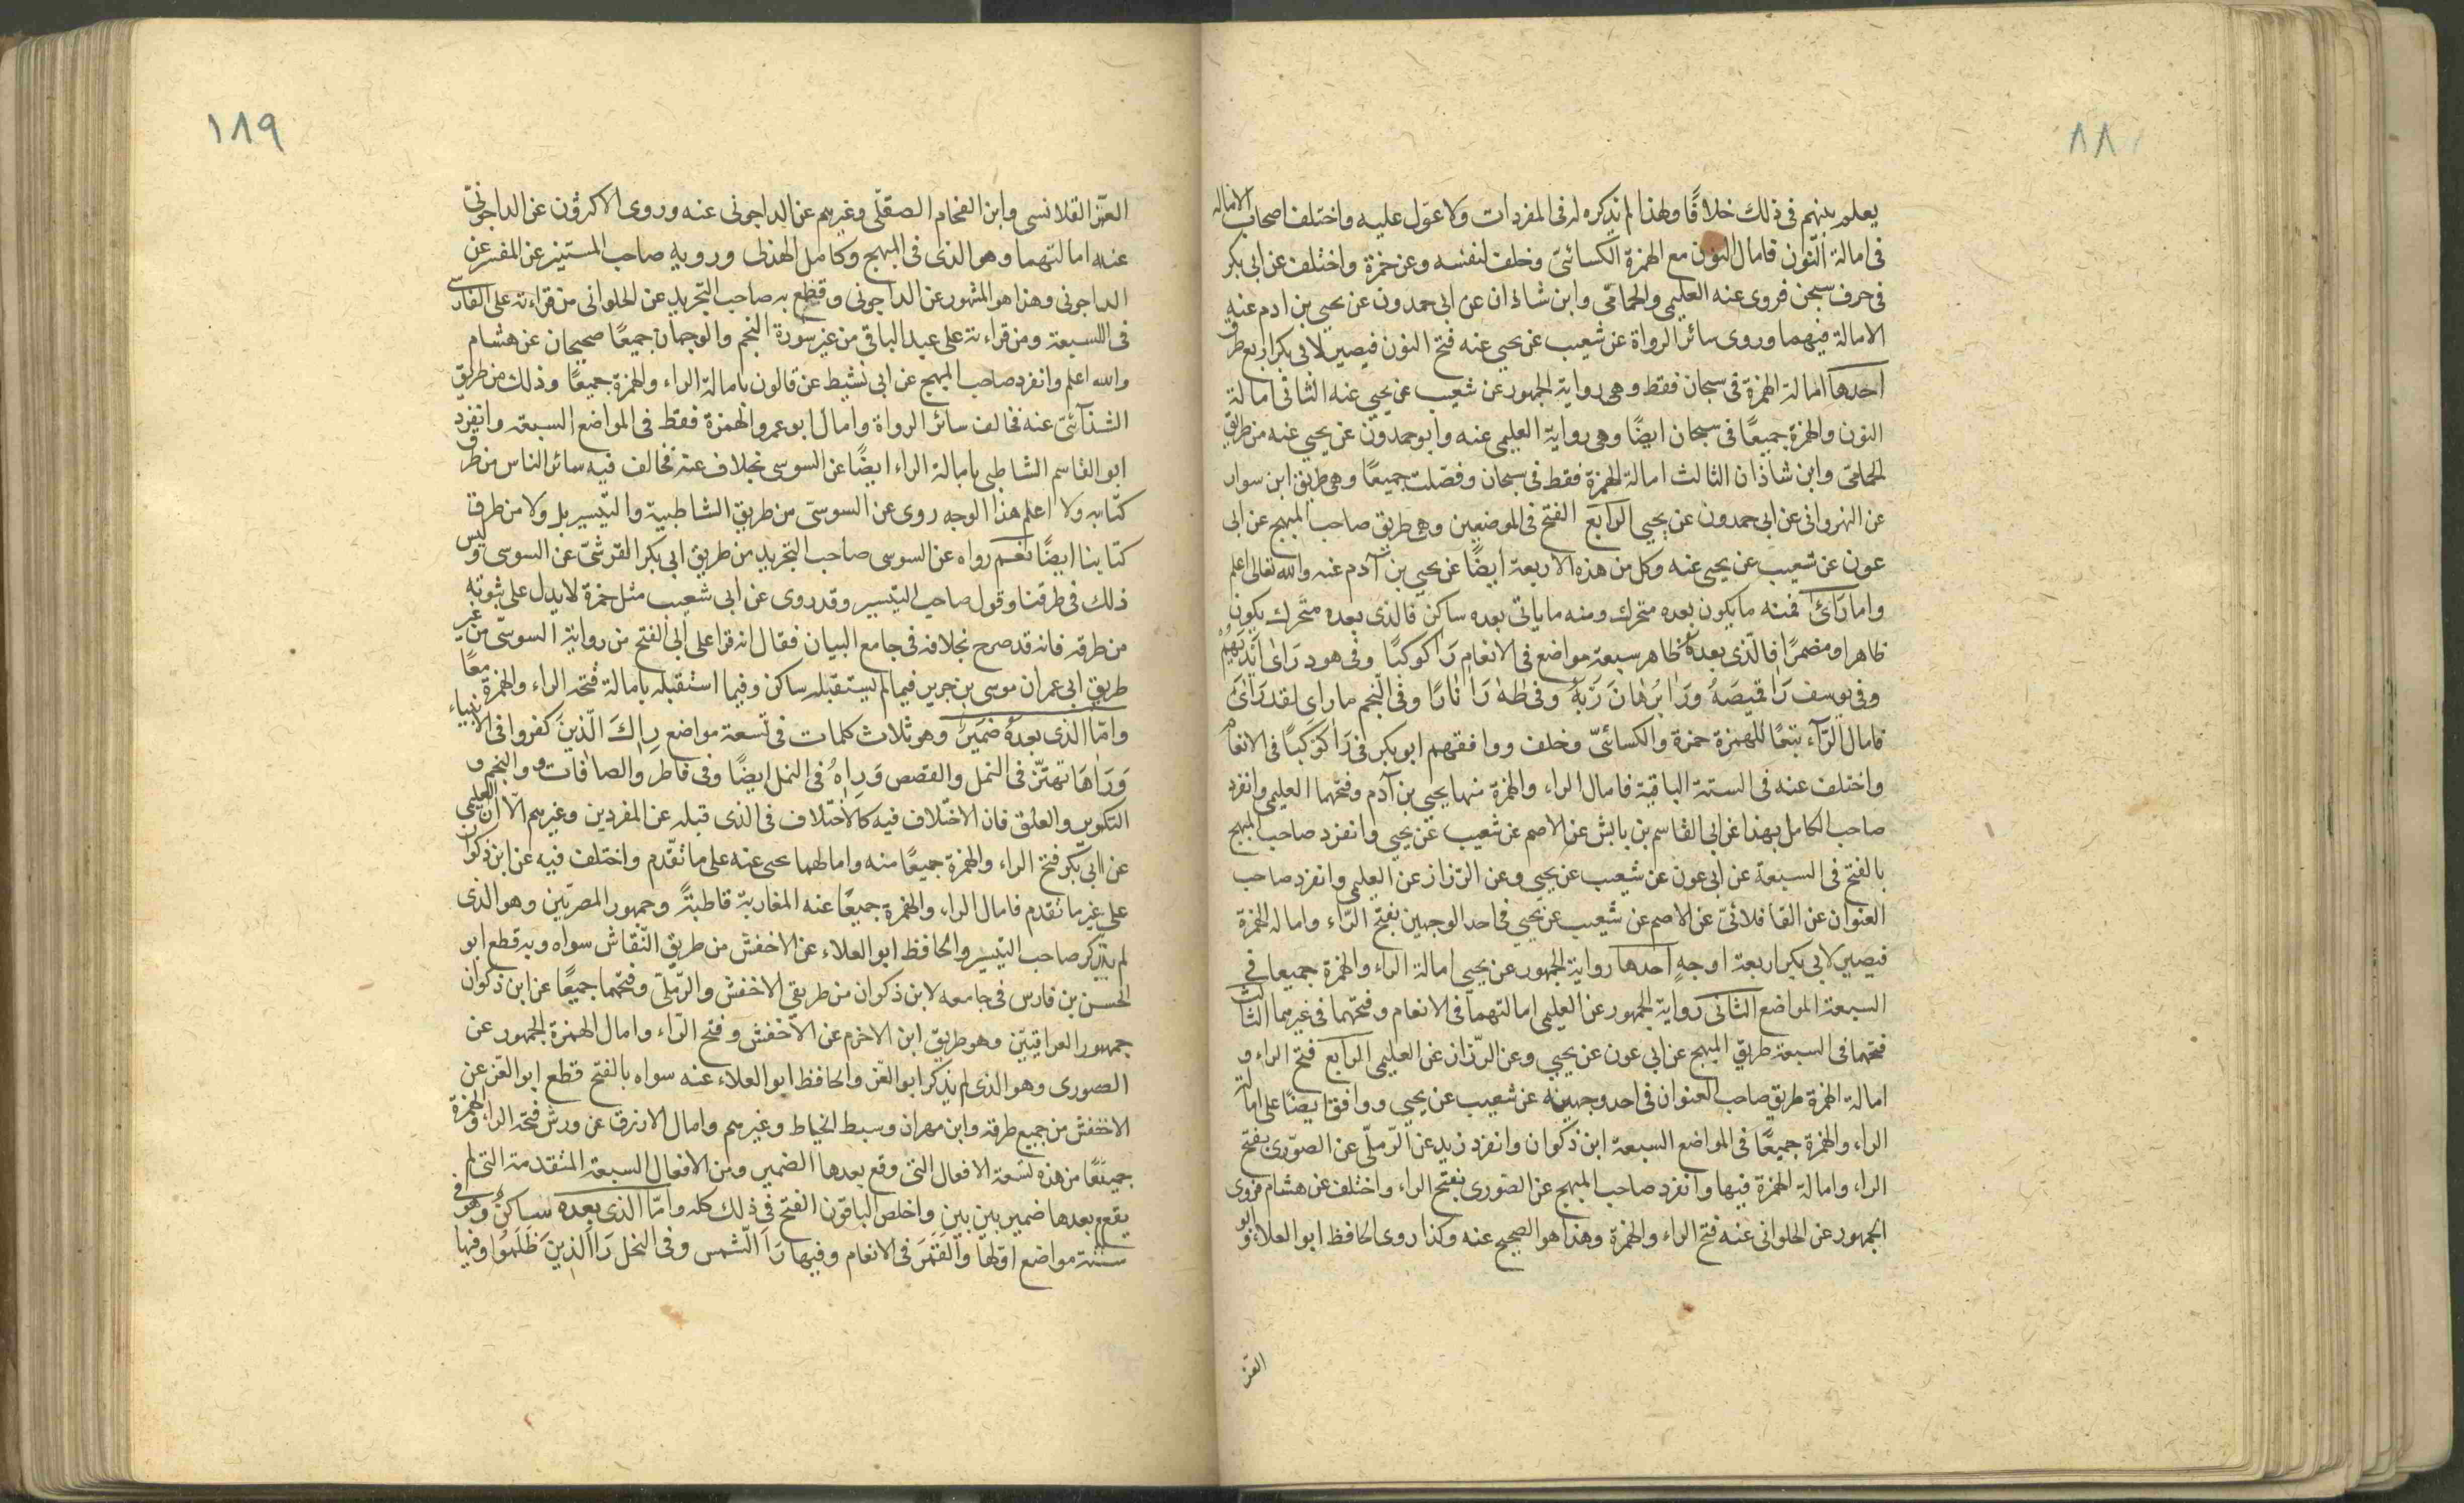 ١٨٨
يعلم بينهم فى ذلك خلافًا ولهذا لم يذكره له فى المفردات ولا عول عليه واختلف اصحاب الامالة
فى امالة النون فامال النون مع الهمزة الكسائىّ وخلف لنفسه وعن حمزة واختلف عن ابى بكر
فى حرف سبحن فروى عنه العليمى والحمامّى وابن شاذان عن ابى حمدون عن يحيى بن ادم عنه
الامالة فيهما وروى سائر الرواة عن شعيب عن يحيى عنه فتح النون فيصير لابى بكر اربع طرق
احدها امالة الهمزة فى سبحان فقط وهى رواية الجمهور عن شعيب عن يحيى عنه الثانى امالة
النون والهمزة جميعًا فى سبحان ايضًا وهى رواية العليمى عنه وابو حمدون عن يحيى عنه من طريق
الحمامّى وابن شاذان الثالث امالة الهمزة فقط فى سبحان وفصلت جميعًا وهى طريق ابن سوار
عن النهروانى عن ابى حمدون عن يحيى الرابع الفتح فى الموضعين وهى طريق صاحب المبهج عن ابى
عون عن شعيب عن يحيى عنه وكل من هذه الاربعة ايضًا عن يحيى بن آدم عنه والله تعالى اعلم
واما رَاىٰ فمنه ما يكون بعده متحرك ومنه ما ياتى بعده ساكن فالذى بعده متحرك يكون
ظاهرا ومضمرًا فالّذى بعده ظاهر سبعة مواضع فى الانعام رَا كوكبًا وفى هود رَاىٰ اَيْديَهُمْ
وفى يوسف رَا قميصَهُ ورَا بُرهَانَ رَبِّهِ وفى طٰهٰ رَا نارًا وفى النجم ما راى لقد رَاىٰ
فامال الرّآء تبعًا للهمزة حمزة والكسائىّ وخلف ووافقهم ابو بكر فى رَا كَوكَبًا فى الانعام
واختلف عنه فى الستة الباقية فامال الراء والهمزة منها يحيى بن آدم وفتحهما العليمى وانفرد
صاحب الكامل بهذا عن ابى القاسم بن بابش عن الاصم عن شعيب عن يحيى وانفرد صاحب المبهج
بالفتح فى السبعة عن ابى عون عن شعيب عن يحيى وعن الرّزاز عن العليمى وانفرد صاحب
العنوان عن القافلائىّ عن الاصم عن شعيب عن يحيى فى احد الوجهين بفتح الرّاء وامالة الهمزة
فيصير لابى بكر اربعة اوجهٍ احدها رواية الجمهور عن يحيى امالة الراء والهمزة جميعا فى
السبعة المواضع الثانى رواية الجمهور عن العليمى امالتهما فى الانعام وفتحهما فى غيرهما الثالث
فتحهما فى السبعة طريق المبهج عن ابى عون عن يحيى وعن الرّزاز عن العليمى الرابع فتح الراء و
امالة الهمزة طريق صاحب العنوان فى احد وجهيه عن شعيب عن يحيى ووافق ايضًا على امالة
الراء والهمزة جميعًا فى المواضع السبعة ابن ذكوان وانفرد زيد عن الرّملّى عن الصوّرى بفتح
الراء وامالة الهمزة فيها وانفرد صاحب المبهج عن الصورى بفتح الراء واختلف عن هشام فروى
الجمهور عن الحلوانى عنه فتح الراء والهمزة وهذا هو الصحيح عنه وكذا روى الحافظ ابو العلاء وابو
العز
١٨٩
العزّ القلانسى وابن الفحام الصقلّى وغيرهم عن الداجونى عنه وروى الاكثرون عن الداجونىّ
عنه امالتهما وهو الذى فى المبهج وكامل الهذلى ورويه صاحب المستنير عن المفسر عن
الداجونى وهذا هو المشهور عن الداجونى وقطع به صاحب التجريد عن الحلوانى من قراءته على الفارسى
فى السبعة ومن قراءته على عبد الباقى من غير سورة النجم والوجهان جميعًا صحيحان عن هشام
والله اعلم وانفرد صاحب المبهج عن ابى نشيط عن قالون بامالة الراء والهمزة جميعًا وذلك من طريق
الشذآئىّ عنه فخالف سائر الرواة وامال ابو عمرو الهمزة فقط فى المواضع السبعة وانفرد
ابو القاسم الشاطبى بامالة الراء ايضًا عن السوسى بخلاف عنه فخالف فيه سائر الناس من طرق
كتابه ولا اعلم هذا الوجه روى عن السوسىّ من طريق الشاطبية والتيسير بل ولا من طرق
كتابنا ايضًا نعم رواه عن السوسى صاحب التجريد من طريق ابى بكر القرشىّ عن السوسى وليس
ذلك فى طرقنا وقول صاحب التيسير وقد روى عن ابى شعيب مثل حمزة لا يدل على ثبوته
من طرقه فانه قد صرح بخلافه فى جامع البيان فقال انه قرا على ابى الفتح من رواية السوسىّ من غير
طريق ابى عمران موسى بن جرير فيما لم يستقبله ساكن وفيما استقبله بامالة فتحة الراء والهمزة معًا
وامّا الذى بعدهُ ضمَير وهو ثلاث كلمات فى تسعة مواضع رِاكَ الّذينَ كفروا فى الانبياء
وَرَاٰهَا تَهتَزّ فى النمل والقصص وَرِاٰهُ فى النمل ايضًا وفى فاطر والصافات والنجم و
التكوير والعلق فان الاختلاف فيه كالاختلاف فى الذى قبله عن المفردين وغيرهم الّا ان العليمى
عن ابى بكر فتح الراء والهمزة جميعًا منه وامالهما يحيى عنه على ما تقّدم واختلف فيه عن ابن ذكوان
على غير ما تقدم فامال الراء والهمزة جميعًا عنه المغاربة قاطبةً وجمهور المصريّين وهو الذى
لم يذكر صاحب التيسير والحافظ ابو العلاء عن الاخفش من طريق النّقاش سواه وبه قطع ابو
الحسن بن فارس فى جامعه لابن ذكوان من طريقى الاخفش والرّملّى وفتحهما جميعًا عن ابن ذكوان
جمهور العراقيّين وهو طريق ابن الاخرم عن الاخفش وفتح الرّاء وامال الهمزة الجمهور عن
الصورى وهو الذى لم يذكر ابو العز والحافظ ابو العلاء عنه سواه بالفتح قطع ابو العز عن
الاخفش من جميع طرقه وابن مهران وسبط الخياط وغيرهم وامال الازرق عن ورش فتحة الراء والهمزة
جميعًا من هذه تسعة الافعال التى وقع بعدها الضمير ومن الافعال السبعة المتقدمة التى لم
يقع بعدها ضمير بين بين واخلص الباقون الفتح فى ذلك كله وامّا الذى بعده ساكنٌ وهو فى
ستة مواضع اوّلها وَاَلقَمَرَ فى الانعام وفيها رَاَ الّشمس وفى النحل رَا اَلذِينَ ظَلَموُا وفيها